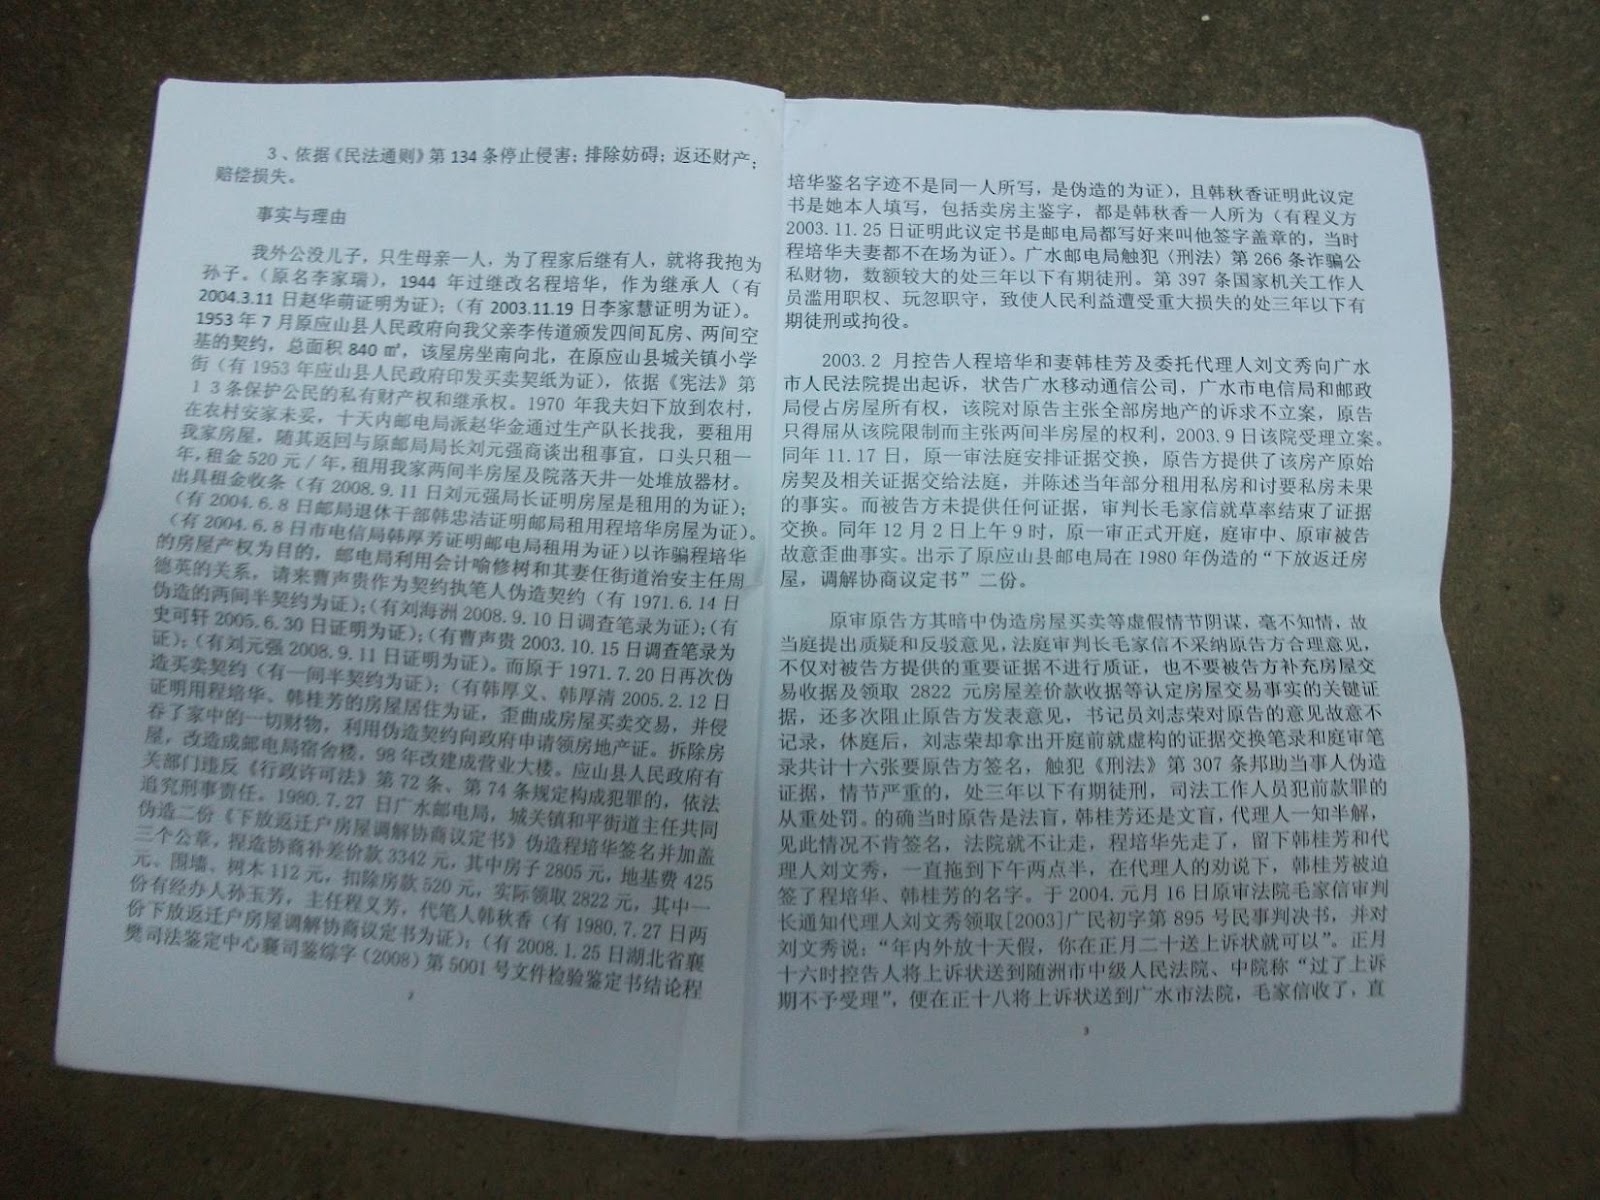 3、依据《民法通则》第 134 条停止侵害；排除妨碍；返还财产；
赔偿损失。
事实与理由
我外公没儿子，只生母亲一人，为了程家后继有人，就将我抱为
孙子。（原名李家瑞），1944 年过继改名程培华，作为继承人（有
2004.3.11 日赵华萌证明为证）；（有 2003.11.19 日李家慧证明为证）。
1953 年 7 月原应山县人民政府向我父亲李传道颁发四间瓦房、两间空
基的契约，总面积 840 ㎡，该屋房坐南向北，在原应山县城关镇小学
街（有 1953 年应山县人民政府印发买卖契纸为证），依据《宪法》第
13条保护公民的私有财产权和继承权。1970 年我夫妇下放到农村，
在农村安家未妥，十天内邮电局派赵华金通过生产队长找我，要租用
我家房屋，随其返回与原邮局局长刘元强商谈出租事宜，口头只租一
年，租金 520 元／年，租用我家两间半房屋及院落天井一处堆放器材。
出具租金收条（有 2008.9.11 日刘元强局长证明房屋是租用的为证）；
（有 2004.6.8 日邮局退休干部韩忠洁证明邮局租用程培华房屋为证）。
（有 2004.6.8 日市电信局韩厚芳证明邮电局租用为证）以诈骗程培华
的房屋产权为目的，邮电局利用会计喻修树和其妻任街道治安主任周
德英的关系，请来曹声贵作为契约执笔人伪造契约（有 1971.6.14 日
伪造的两间半契约为证）；（有刘海洲 2008.9.10 日调查笔录为证）；（有
史可轩 2005.6.30 日证明为证）；（有曹声贵 2003.10.15 日调查笔录为
证）；（有刘元强 2008.9.11 日证明为证）。而原于 1971.7.20 日再次伪
造买卖契约（有一间半契约为证）；（有韩厚义、韩厚清 2005.2.12 日
证明用程培华、韩桂芳的房屋居住为证，歪曲成房屋买卖交易，并侵
吞了家中的一切财物，利用伪造契约向政府申请领房地产证。拆除房
屋，改造成邮电局宿舍楼。98 年改建成营业大楼。应山县人民政府有
关部门违反《行政许可法》第 72 条、第 74 条规定构成犯罪的，依法
追究刑事责任。1980.7.27 日广水邮电局，城关镇和平街道主任共同
伪造二份《下放返迁户房屋调解协商议定书》伪造程培华签名并加盖
三个公章，捏造协商补差价款 3342 元，其中房子 2805 元，地基费 425
元、围墙、树木 112 元，扣除房款 520 元，实际领取 2822 元，其中一
份有经办人孙玉芳，主任程义芳，代笔人韩秋香（有 1980.7.27 日两
份下放返迁户房屋调解协商议定书为证）；（有 2008.1.25 日湖北省襄
樊司法鉴定中心襄司鉴综字（2008）第 5001 号文件检验鉴定书结论程
2
培华鉴名字迹不是同一人所写，是伪造的为证），且韩秋香证明此议定
书是她本人填写，包括卖房主鉴字，都是韩秋香一人所为（有程义方
2003.11.25 日证明此议定书是邮电局都写好来叫他签字盖章的，当时
程培华夫妻都不在场为证）。广水邮电局触犯〈刑法〉第 266 条诈骗公
私财物，数额较大的处三年以下有期徒刑。第 397 条国家机关工作人
员滥用职权、玩忽职守，致使人民利益遭受重大损失的处三年以下有
期徒刑或拘役。
2003.2 月控告人程培华和妻韩桂芳及委托代理人刘文秀向广水
市人民法院提出起诉，状告广水移动通信公司，广水市电信局和邮政
局侵占房屋所有权，该院对原告主张全部房地产的诉求不立案，原告
只得屈从该院限制而主张两间半房屋的权利，2003.9 日该院受理立案。
同年 11.17 日，原一审法庭安排证据交换，原告方提供了该房产原始
房契及相关证据交给法庭，并陈述当年部分租用私房和讨要私房未果
的事实。而被告方未提供任何证据，审判长毛家信就草率结束了证据
交换。同年 12 月 2 日上午 9 时，原一审正式开庭，庭审中、原审被告
故意歪曲事实。出示了原应山县邮电局在 1980 年伪造的“下放返迁房
屋，调解协商议定书”二份。
原审原告方其暗中伪造房屋买卖等虚假情节阴谋，毫不知情，故
当庭提出质疑和反驳意见，法庭审判长毛家信不采纳原告方合理意见，
不仅对被告方提供的重要证据不进行质证，也不要被告方补充房屋交
易收据及领取 2822 元房屋差价款收据等认定房屋交易事实的关键证
据，还多次阻止原告方发表意见，书记员刘志荣对原告的意见故意不
记录，休庭后，刘志荣却拿出开庭前就虚构的证据交换笔录和庭审笔
录共计十六张要原告方签名，触犯《刑法》第 307 条邦助当事人伪造
证据，情节严重的，处三年以下有期徒刑，司法工作人员犯前款罪的
从重处罚。的确当时原告是法盲，韩桂芳还是文盲，代理人一知半解，
见此情况不肯签名，法院就不让走，程培华先走了，留下韩桂芳和代
理人刘文秀，一直拖到下午两点半，在代理人的劝说下，韩桂芳被迫
签了程培华、韩桂芳的名字。于 2004.元月 16 日原审法院毛家信审判
长通知代理人刘文秀领取[2003]广民初字第 895 号民事判决书，并对
刘文秀说：“年内外放十天假，你在正月二十送上诉状就可以”。正月
十六时控告人将上诉状送到随洲市中级人民法院、中院称“过了上诉
期不予受理”，便在正十八将上诉状送到广水市法院，毛家信收了，直
3